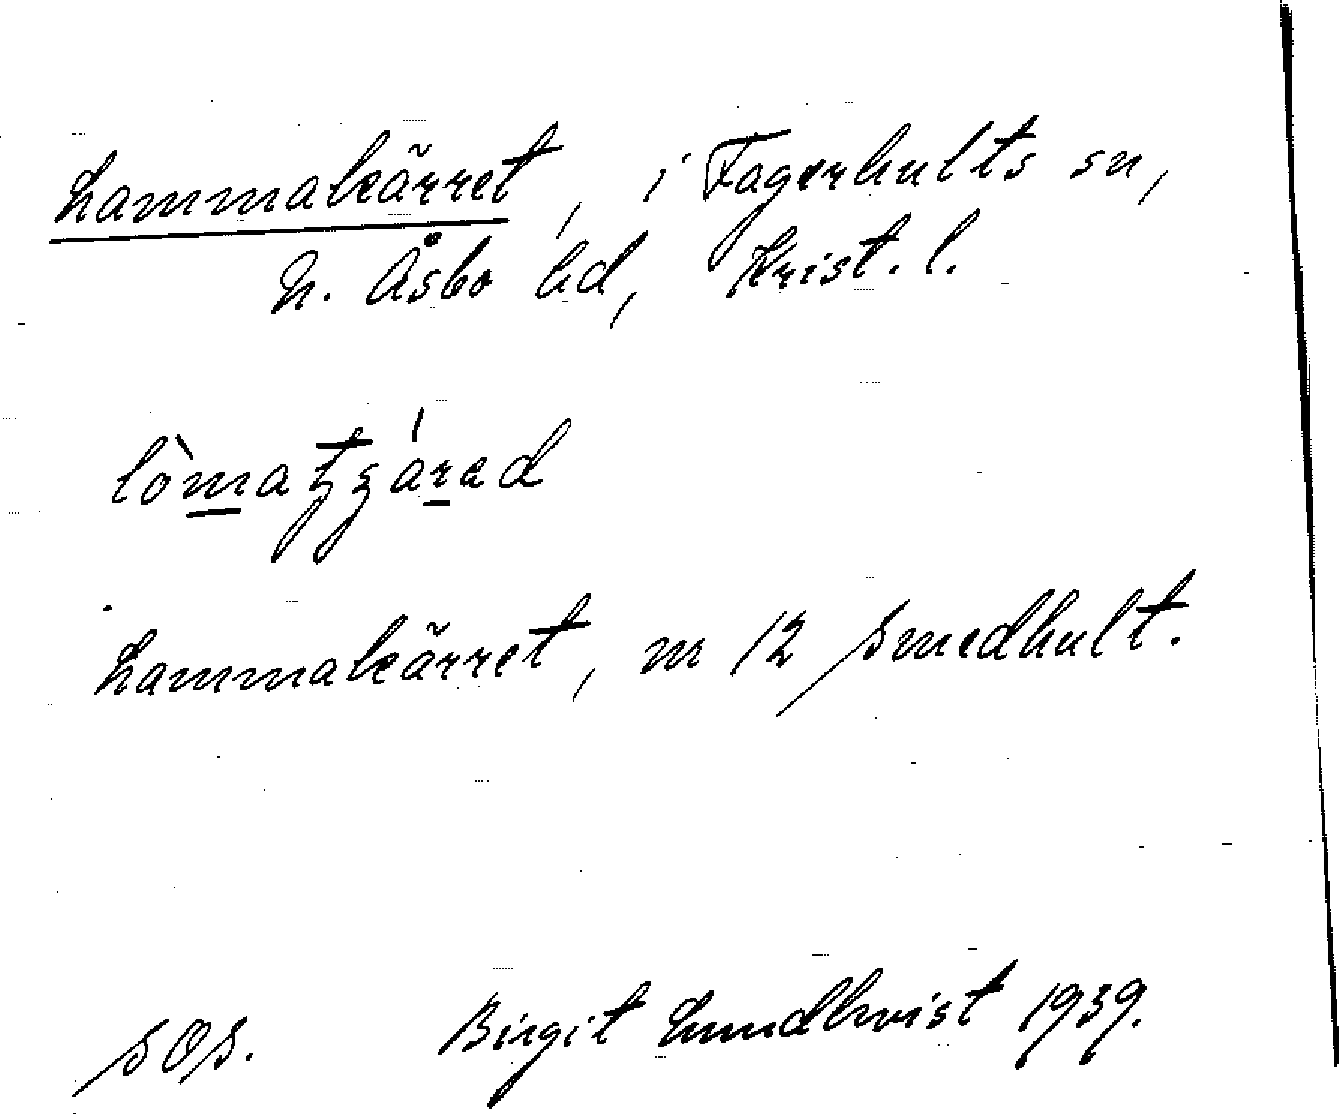 Lammakärret, i Fagerhults sn,
N. Åsbo hd, Krist. l.
Lammakärret, m 12 Smedhult.
SOS. Birgit Lundkvist 1939.